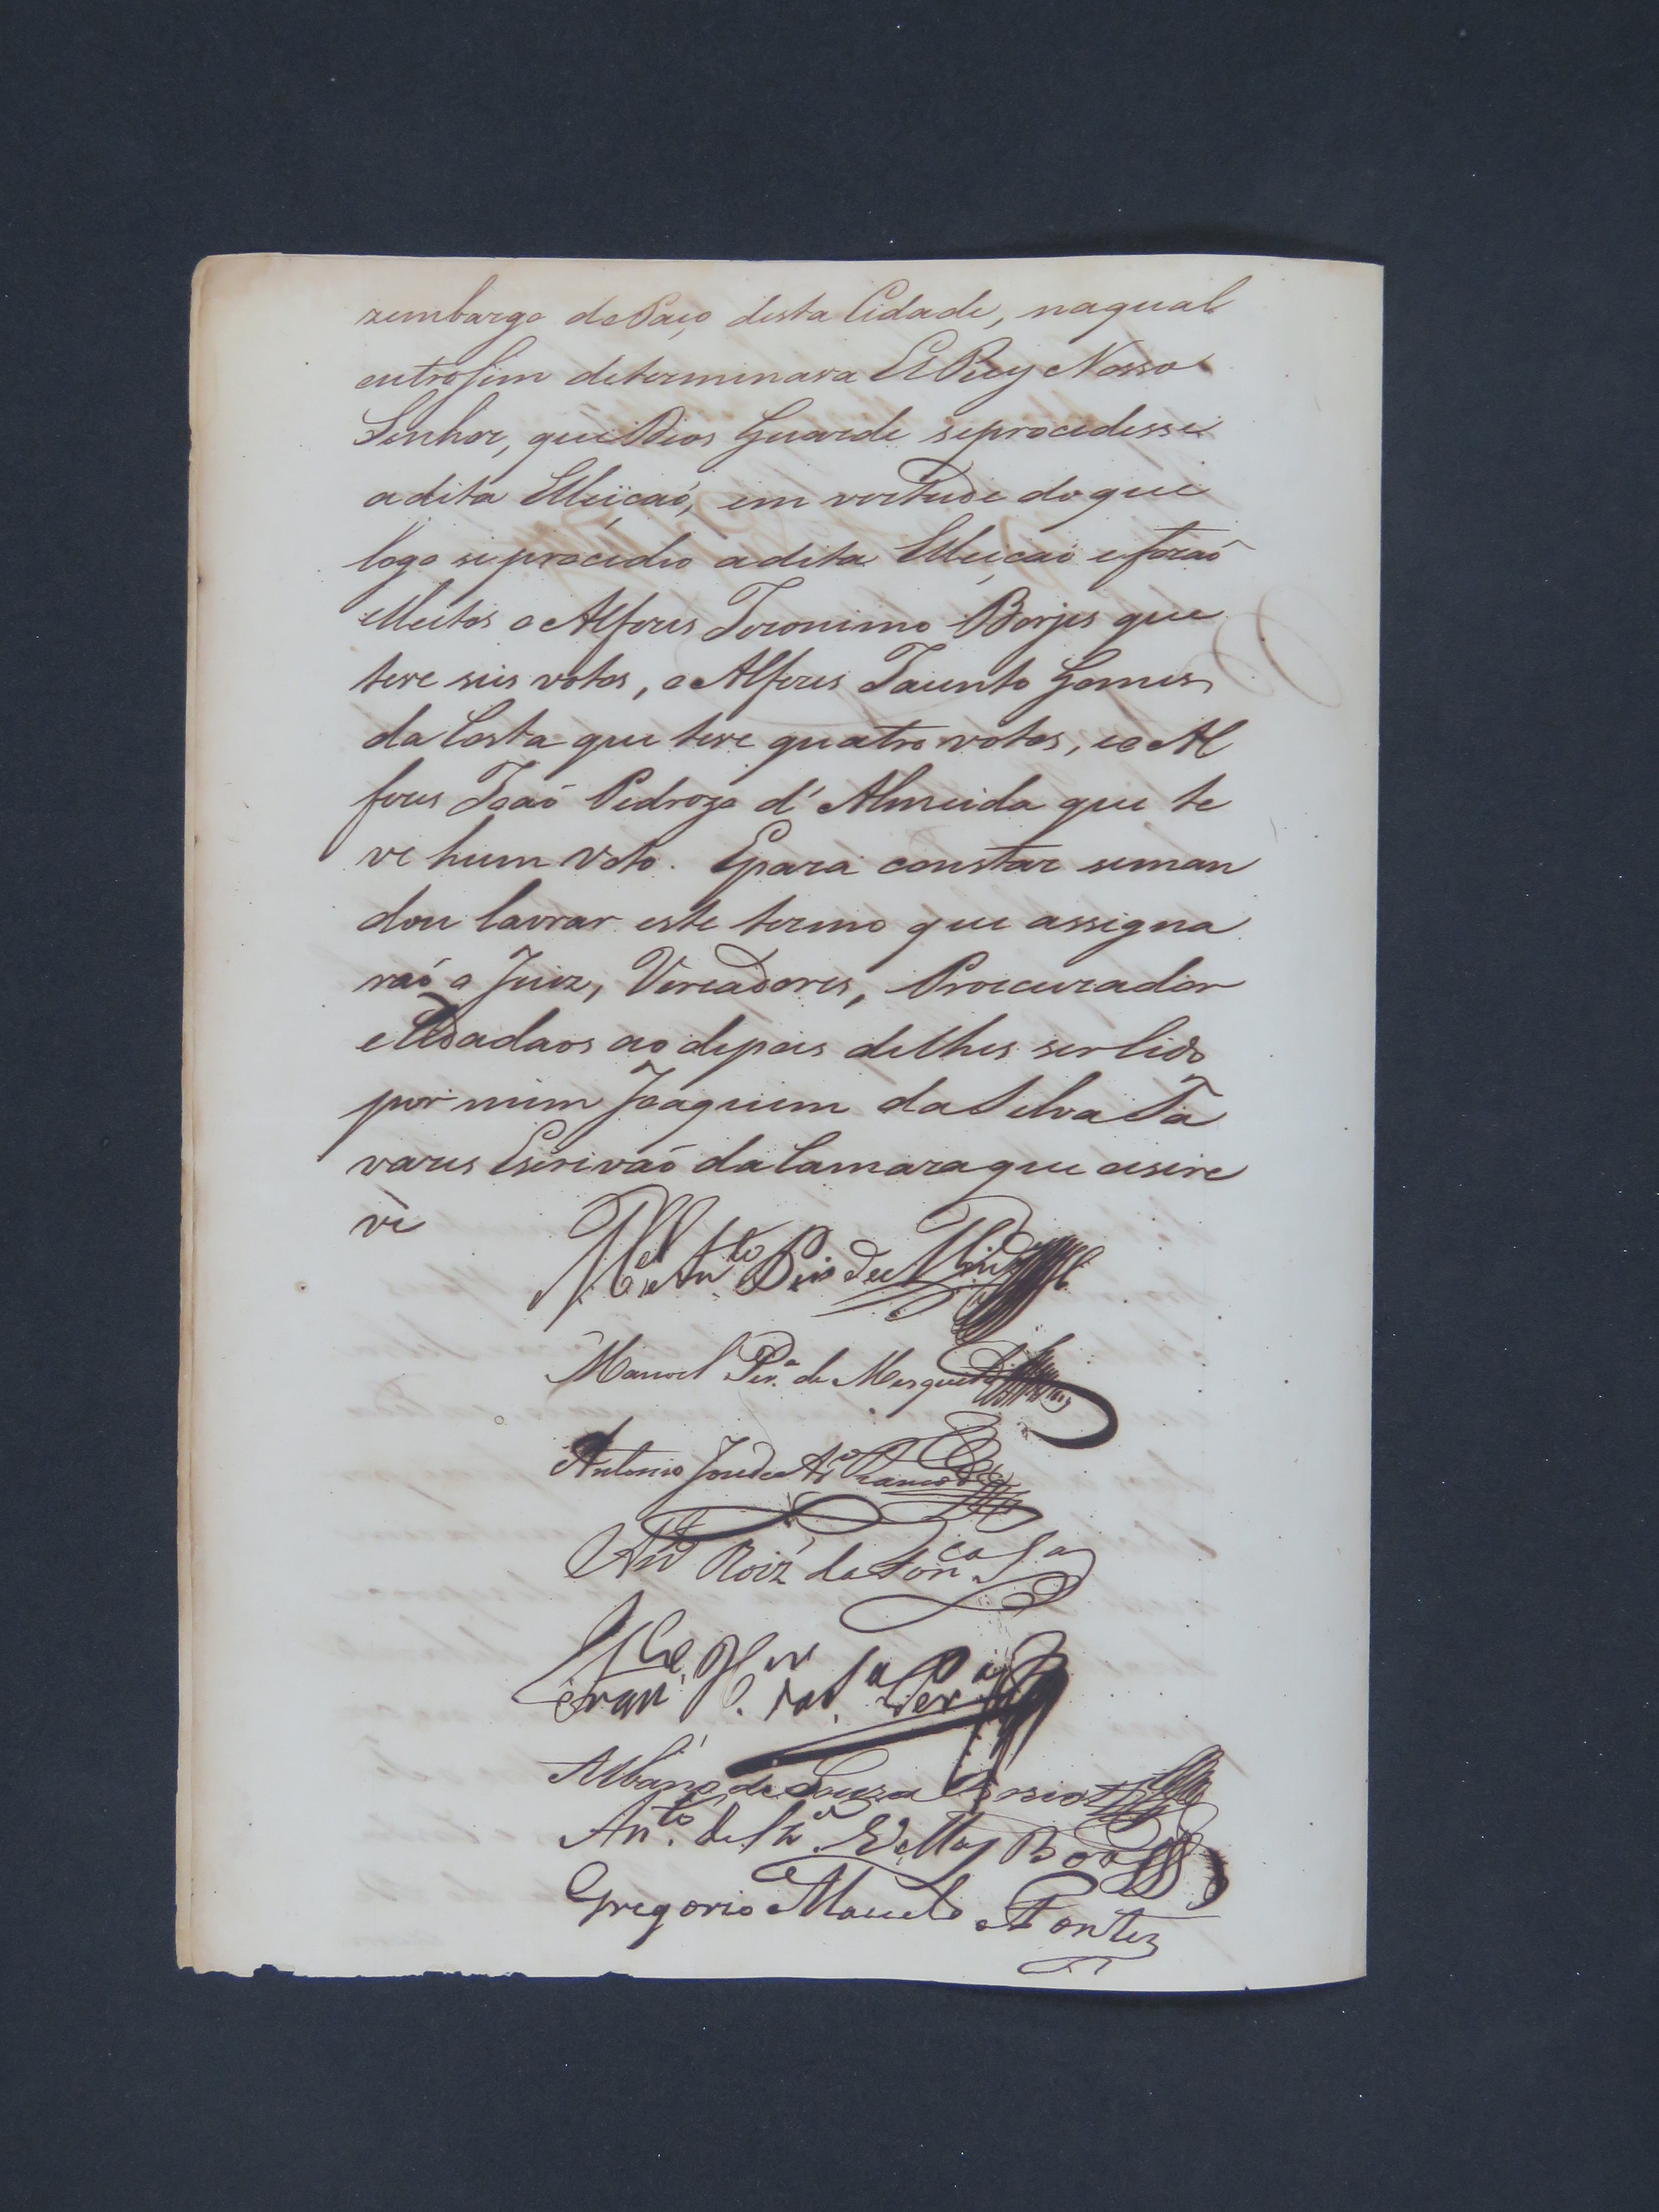 zembargo do Paço desta Cidade, naqual
outrosim determinava El Rey Nosso
Senhor, que Deos Guarde seprocedesse
adita Elleiçaõ, em vertude doque
logo seprocedeo adita Elleiçaõ eforaõ
elleitos o Alferes Jeronimo Borjes que
teve seis votos, o Alferes Jacinto Gomes
da Costa que teve quatro votos, eo Al
feres Joaõ Pedrozo d'Almeida que te
ve hum Voto. Epara constar seman
dou lavrar este termo que assigna
raõ o Juiz, Vereadores, Procurador
eCidadaos ao depois delhes ser lido
por mim Joaquim da Silva Ta
vares Escrivaõ da Camara que oescre
vi
Mel Anto Pis de
Manoel Per.a de Mesquita
Antonio Joze de Ar.o Ramos
Anto Roiz' da Fon.ca Sa
Fran.co da Sa Per.a
Albano de Souza Ozorio
An.to de Sz.a
Gregorio Macedo Fontez